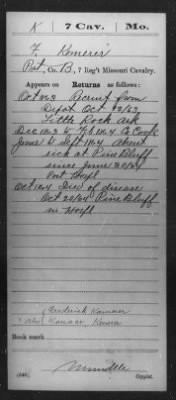 K 7 Cav. Mo.
F. Kemerer
Pvt, Co. B, 7 Reg't Missouri Cavalry.
Appears on Returns as follows:
Oct 1863 Recruit from
Depot Oct 22/63
Little Rock Ark
Dec 1863 to Feb 1864 Co Cook
June to Sept 1864 Absent
sick at Pine Bluff
since June 30/64
Post Hospl
Oct 1864 Died of disease
Oct 20/64 Pine Bluff
in Hospl
Frederick Kammerer
Book mark:
(546)
Copyist.